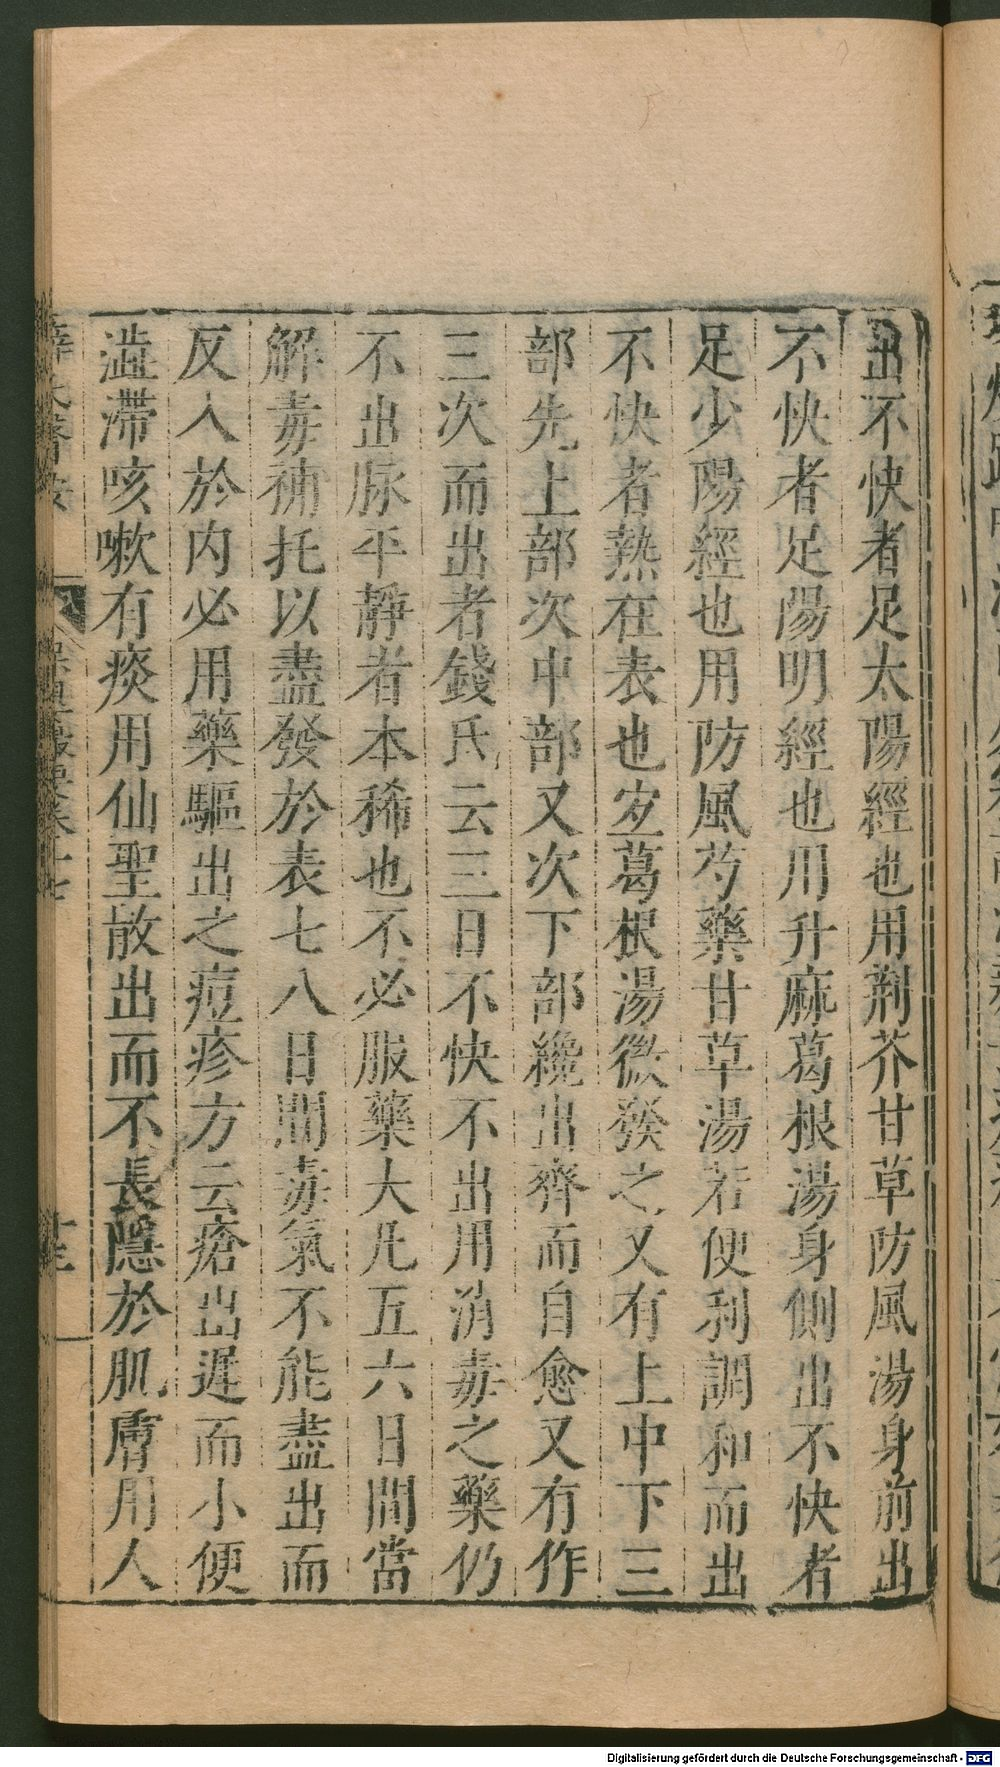 出不快者足太陽經也用荆芥甘草防風湯身前出
不快者足陽明經也用升麻葛根湯身側出不快者
足少陽經也用防風芍藥甘草湯若便利調和而出
不快者熱在表也宜葛根湯微發之又有上中下三
部先上部次中部又次下部纔出齊而自愈又有作
三次而出者錢氏云三日不快不出用消毒之藥仍
不出脉平靜者本稀也不必服藥大凡五六日間當
解毒補托以盡發於表七八日間毒氣不能盡出而
反入於内必用藥驅出之痘疹方云瘡出遲而小便
澁滯咳嗽有痰用仙聖散出而不長隱於肌膚用人
Digitalisierung gefördert durch die Deutsche Forschungsgemeinschaft - DFG